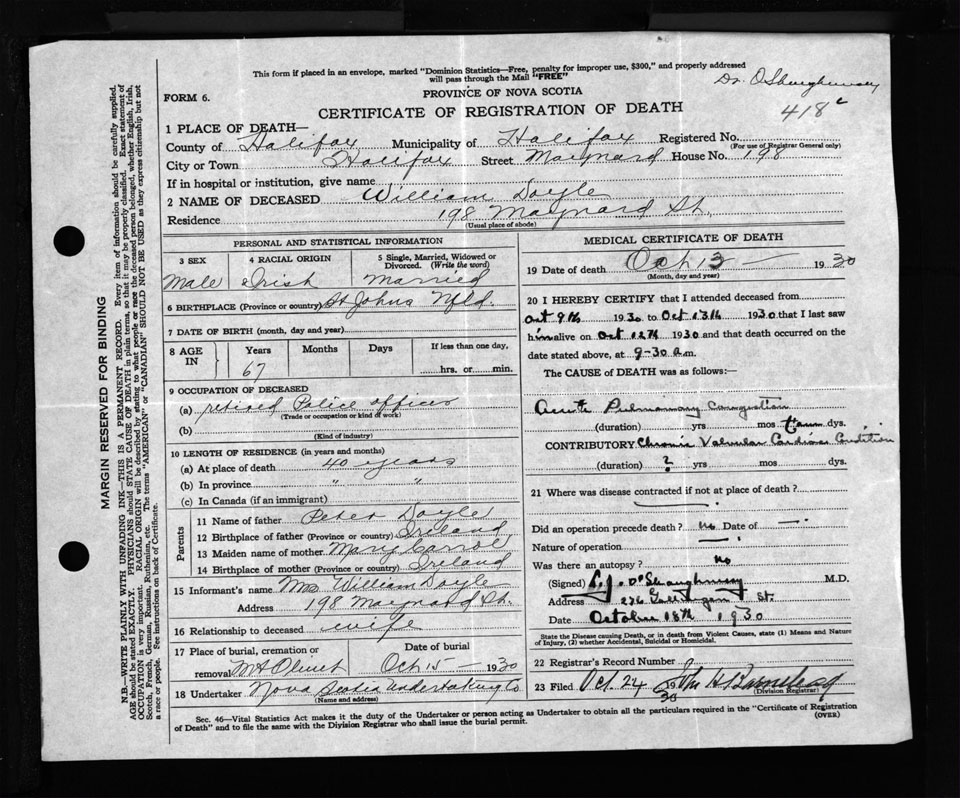 This form if placed in an envelope, marked "Dominion Statistics—Free, penalty for improper use, $300," and properly addressed
will pass through the Mail "FREE"
Dr. O'Shaughnessy
418 c
FORM 6.
PROVINCE OF NOVA SCOTIA
CERTIFICATE OF REGISTRATION OF DEATH
1 PLACE OF DEATH—
County of Halifax Municipality of Halifax Registered No.
(For use of Registrar General only)
City or Town Halifax Street Maynard House No. 198
If in hospital or institution, give name
2 NAME OF DECEASED William Doyle
Residence 198 Maynard St.
(Usual place of abode)
PERSONAL AND STATISTICAL INFORMATION
3 SEX 4 RACIAL ORIGIN 5 Single, Married, Widowed or Divorced. (Write the word)
Male Irish Married
6 BIRTHPLACE (Province or country) St Johns Nfld.
7 DATE OF BIRTH (month, day and year)
8 AGE IN Years Months Days If less than one day,
67 hrs. or min.
9 OCCUPATION OF DECEASED
(a) retired Police officer
(Trade or occupation or kind of work)
(b)
(Kind of industry)
10 LENGTH OF RESIDENCE (in years and months)
(a) At place of death 40 years
(b) In province " "
(c) In Canada (if an immigrant)
Parents
11 Name of father Peter Doyle
12 Birthplace of father (Province or country) Ireland
13 Maiden name of mother Mary Carrol
14 Birthplace of mother (Province or country) Ireland
15 Informant's name Mrs William Doyle
Address 198 Maynard St.
16 Relationship to deceased wife
17 Place of burial, cremation or removal Mt Olivet Date of burial Oct 15 1930
18 Undertaker Nova Scotia Undertaking Co
(Name and address)
MEDICAL CERTIFICATE OF DEATH
19 Date of death Oct 13 1930
(Month, day and year)
20 I HEREBY CERTIFY that I attended deceased from
Oct 9th 1930 to Oct 13th 1930 that I last saw
him alive on Oct 12th 1930 and that death occurred on
date stated above, at 9-30 a.m.
The CAUSE of DEATH was as follows:—
Acute Pulmonary Congestion
(duration) yrs mos dys.
CONTRIBUTORY Chronic Valvular Cardiac Condition
(duration) ? yrs mos dys.
21 Where was disease contracted if not at place of death?
Did an operation precede death? No Date of —
Nature of operation —
Was there an autopsy? No
(Signed) L.J. O'Shaughnessy M.D.
Address 276 Gottingen St.
Date October 13th 1930
State the Disease causing Death, or in death from Violent Causes, state (1) Means and Nature
of Injury, (2) whether Accidental, Suicidal or Homicidal.
22 Registrar's Record Number
23 Filed Oct. 24 30
(Division Registrar)
Sec. 46—Vital Statistics Act makes it the duty of the Undertaker or person acting as Undertaker to obtain all the particulars required in the "Certificate of Registration
of Death" and to file the same with the Division Registrar who shall issue the burial permit.
(OVER)
MARGIN RESERVED FOR BINDING
N.B.—WRITE PLAINLY WITH UNFADING INK—THIS IS A PERMANENT RECORD. Every item of information should be carefully supplied.
AGE should be stated EXACTLY. PHYSICIANS should STATE CAUSE OF DEATH in plain terms, so that it may be properly classified. Exact statement of
OCCUPATION is very important. RACIAL ORIGIN will be described by stating to what people or race the deceased person belonged, whether English, Irish,
Scotch, French, German, Russian, Ruthenian, etc. The terms "AMERICAN" or "CANADIAN" SHOULD NOT BE USED as they express citizenship but not
a race or people. See instructions on back of Certificate.